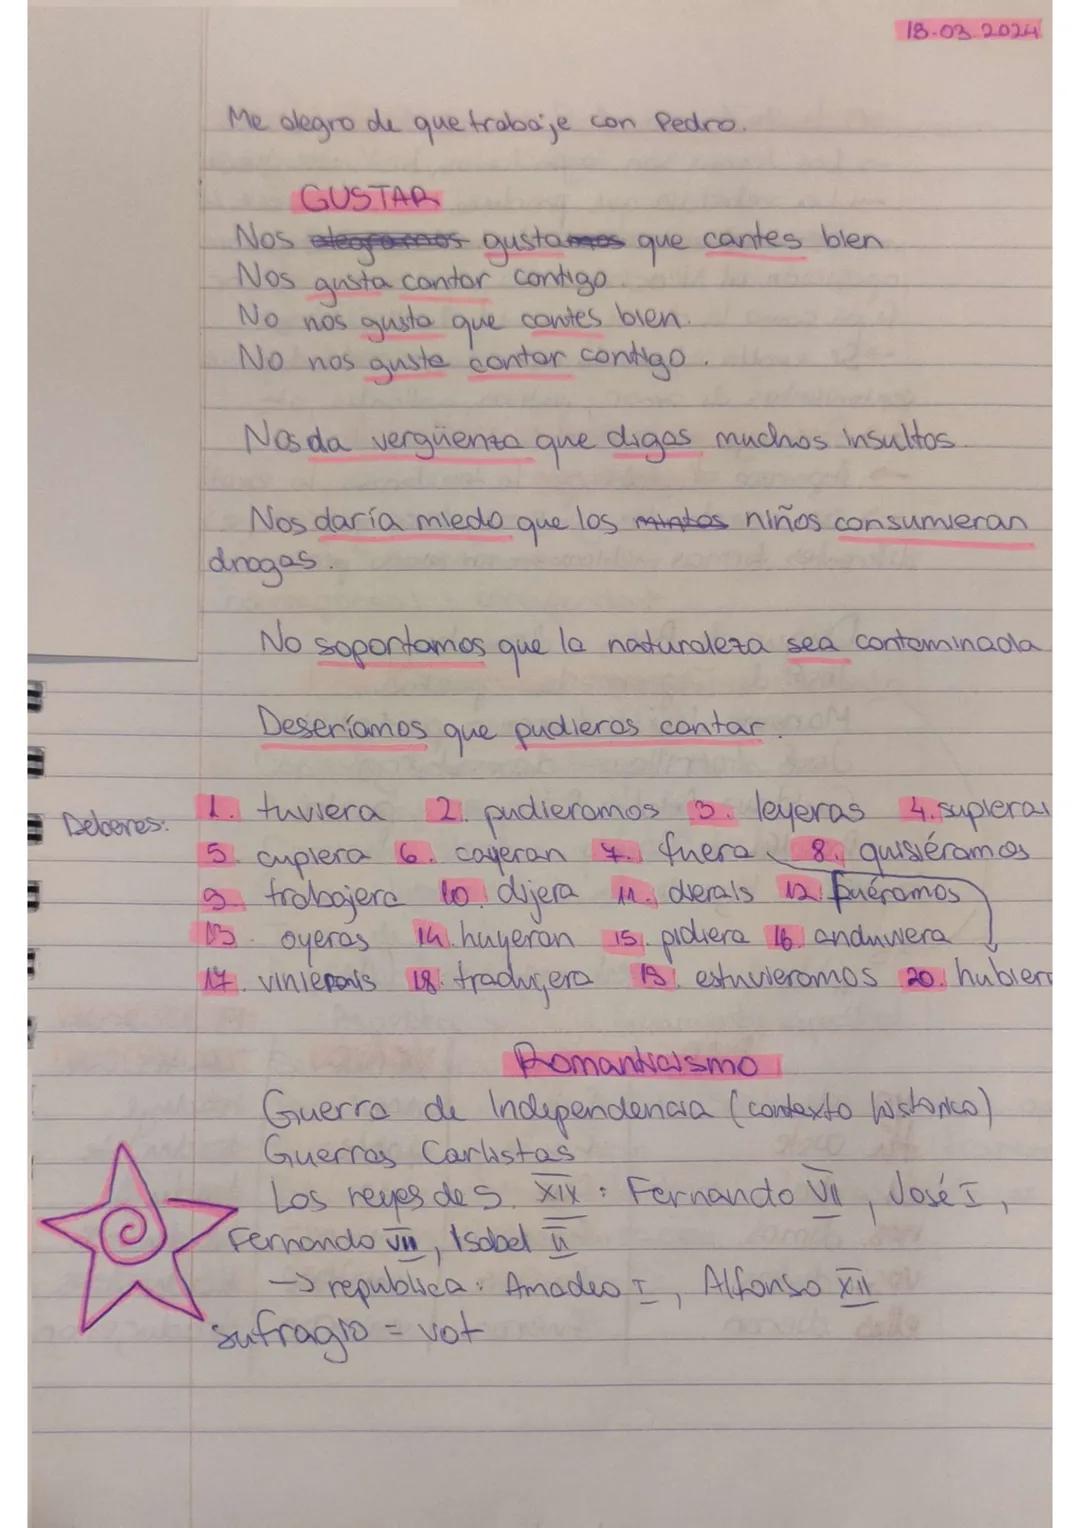 18.03.2024
Me alegro de que trabaje con Pedro.
GUSTAR
Nos alegramos gustamos que cantes bien
Nos gusta cantar contigo.
No nos gusta que cantes bien.
No nos gusta cantar contigo.
Nos da vergüenza que digas muchos insultos.
Nos daría miedo que los niños consumieran
drogas.
No soportamos que la naturaleza sea contaminada
Desearíamos que pudieras cantar.
Deberes: 1. tuviera 2. pudieramos 3. leyeras 4. supieras
5. cupiera 6. cayeran 7. fuera 8. quisiéramos
9. trabajera 10. dijera 11. dierais 12. fuéramos
13. oyeras 14. huyeran 15. pidiera 16. anduviera
17. vinierais 18. tradujera 19. estuvieramos 20. hubiera
Romanticismo
Guerra de Independencia (contexto histórico)
Guerras Carlistas
Los reyes de S. XIX: Fernando VII, José I,
Fernando VII, Isabel II
→ republica: Amadeo I, Alfonso XII
sufragio = vot